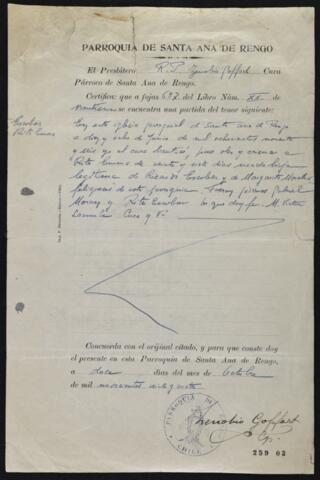 PARROQUIA DE SANTA ANA DE RENGO
El Presbítero R. P. Zenobio Goffart Cura
Párroco de Santa Ana de Rengo.
Certifica: que a fojas 6 del Libro Núm. XX de
Bautismos se encuentra una partida del tenor siguiente:
Escobar
Rita Emma
En esta iglesia parroquial de Santa Ana de Rengo
a diez y ocho de Junio de mil ochocientos noventa
y seis yo el cura bautizó, puso oleo y crisma a
Rita Emma de veinte e siete días nacida hija
legítima de Ricardo Escobar y de Margarita Morales
feligreses de esta parroquia. Fueron padrinos Gabriel
Moraes y Rita Escobar lo que doy fe. M. Victor
Cura y V.
Concuerda con el original citado, y para que conste doy
el presente en esta Parroquia de Santa Ana de Rengo,
a doce días del mes de Octubre
de mil novecientos
PARROQUIA DE
CHILE
Zenobio Goffart
259 02